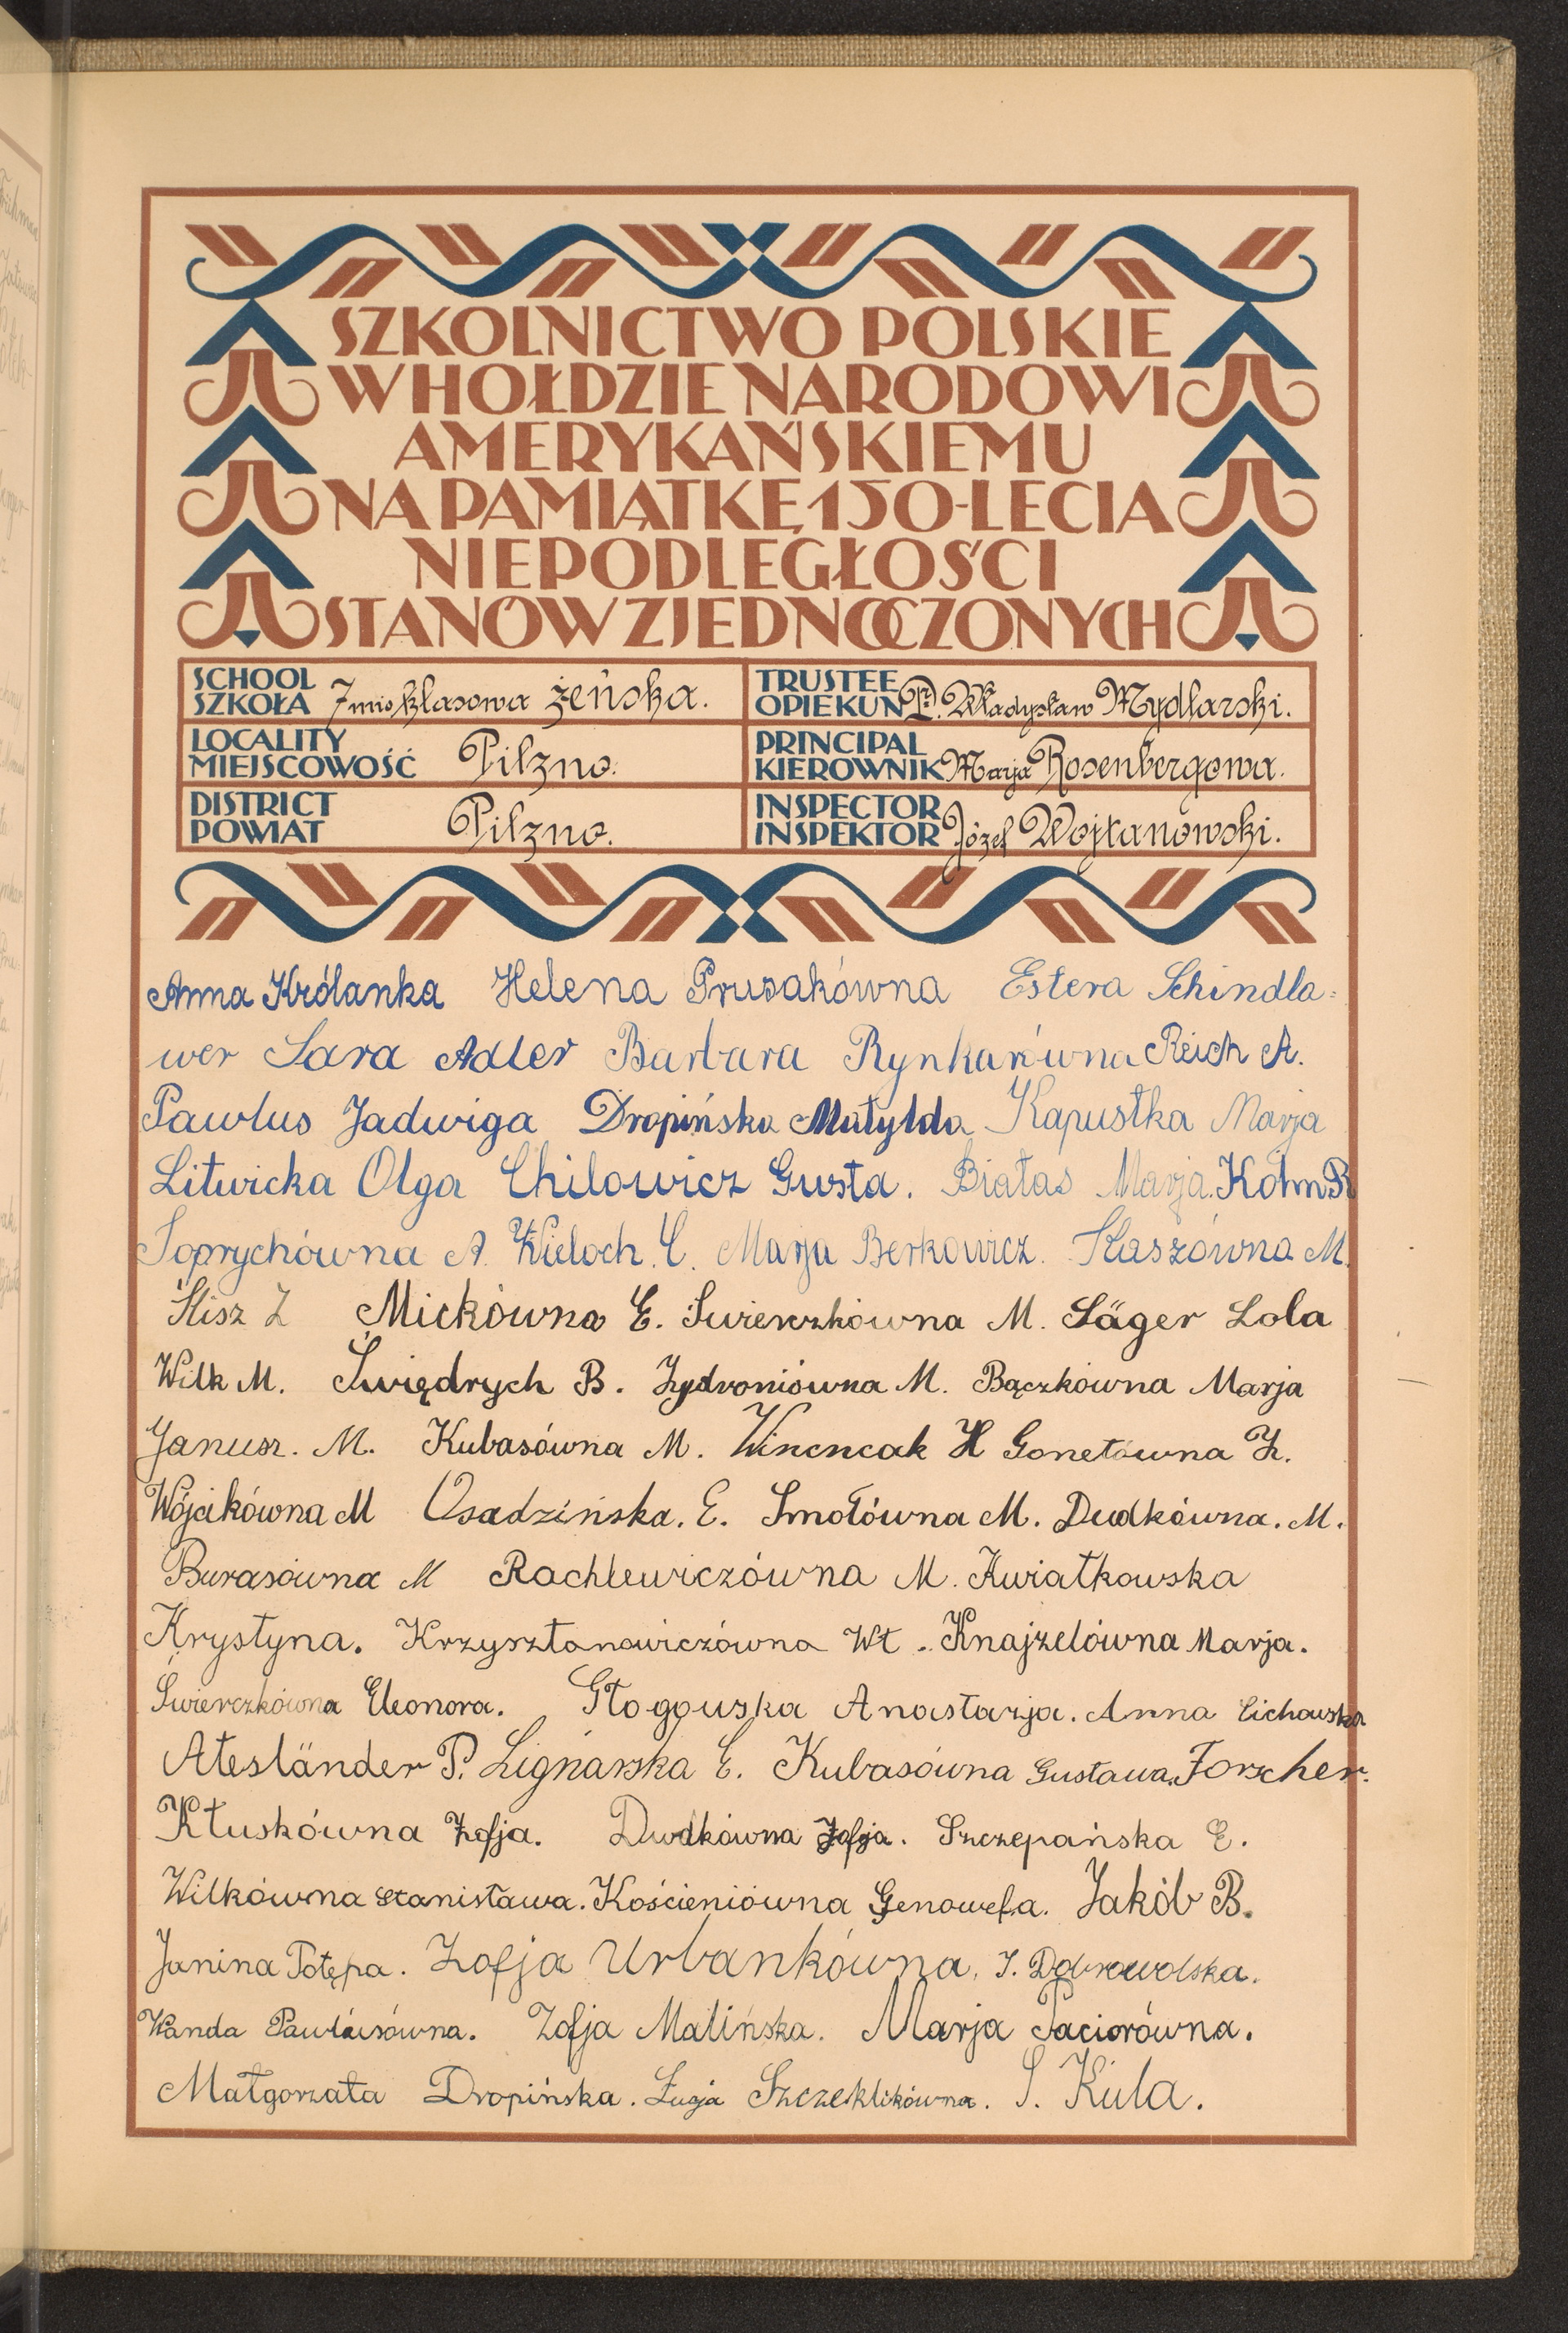 SZKOLNICTWO POLSKIE
W HOŁDZIE NARODOWI
AMERYKAŃSKIEMU
NA PAMIĄTKĘ 150-LECIA
NIEPODLEGŁOŚCI
STANÓW ZJEDNOCZONYCH
SCHOOL
SZKOŁA 7mio klasowa żeńska.
TRUSTEE
OPIEKUN P. Władysław Mydlarski.
LOCALITY
MIEJSCOWOŚĆ Pilzno.
PRINCIPAL
KIEROWNIK Marja Rosenbergowa.
DISTRICT
POWIAT Pilzno.
INSPECTOR
INSPEKTOR Józef Wojtanowski.
Anna Królanka Helena Prusakówna Estera Schindla=
wer Sara Adler Barbara Rynkarówna Reich A.
Pawlus Jadwiga Dropińska Matylda Kapustka Marja
Litwicka Olga Chilowicz Gusta. Białas Marja. Kołm R
Soprychówna A. Kieloch. C. Marja Berkowicz. Kaszówna M.
Slisz Z Mickówna E. Świerczkówna M. Säger Lola
Wilk M. Świędrych B. Zydroniówna M. Bączkówna Marja
Janusz. M. Kubasówna M. Winencak H Gonetówna Z.
Wójcikówna M Osadzińska. E. Smołówna M. Dudkówna. M.
Burasówna M Rachlewiczówna M. Kwiatkowska
Krystyna. Krzysztanowiczówna Wł. Knajzelówna Marja.
Świerczkówna Eleonora. Głogowska Anastazja. Anna Cichawska
Atesländer P. Lignarska E. Kubasówna Gustawa. Forscher.
Kłuskówna Zofja. Dudkówna Zofja. Szczepańska E.
Wilkówna Stanisława. Kościeniówna Genowefa. Jakób B.
Janina Potępa. Zofja Urbankówna. J. Dobrowolska.
Wanda Pawłusówna. Zofja Malińska. Marja Paciorówna.
Małgorzata Dropińska. Łucja Szczeklikówna. S. Kula.